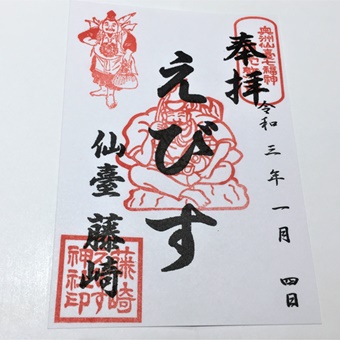 奉拝
奥州仙臺七福神
令和三年一月四日
えびす
仙臺 藤崎
藤崎
えびす
神社印